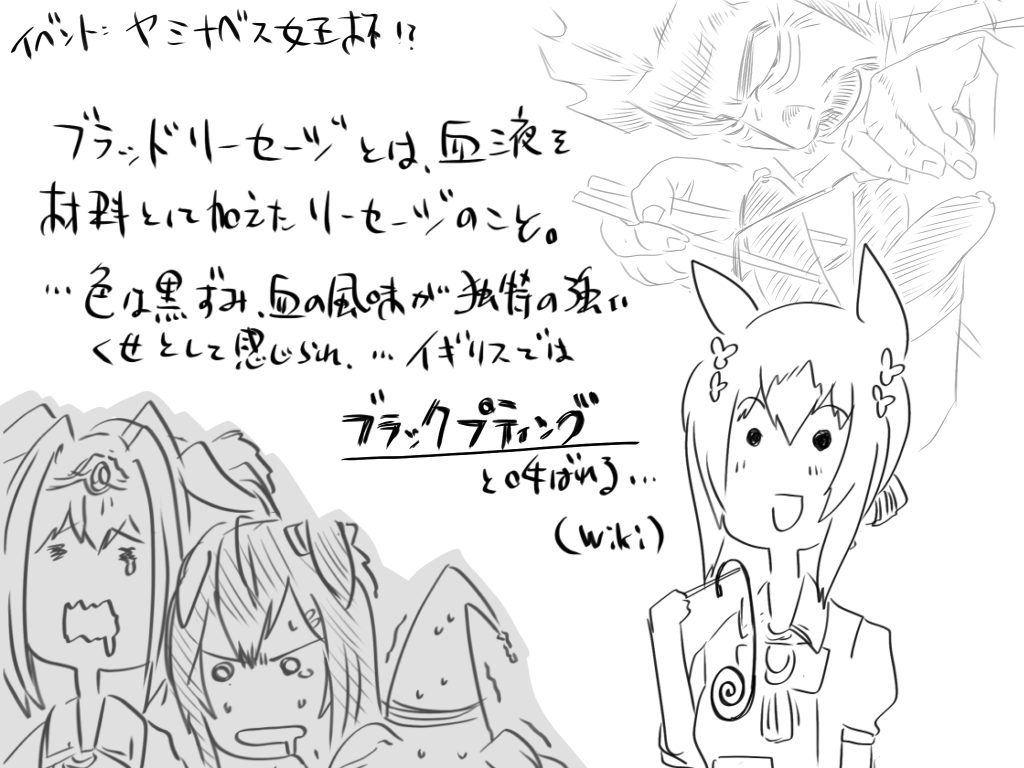 イベント:ヤミナベス女王杯!?
ブラッドリーセージとは、血液を
材料として加えたリーセージのこと。
…色は黒ずみ、血の風味が独特の強い
くせとして感じられ、…イギリスでは
ブラックプティング
と呼ばれる…
(wiki)